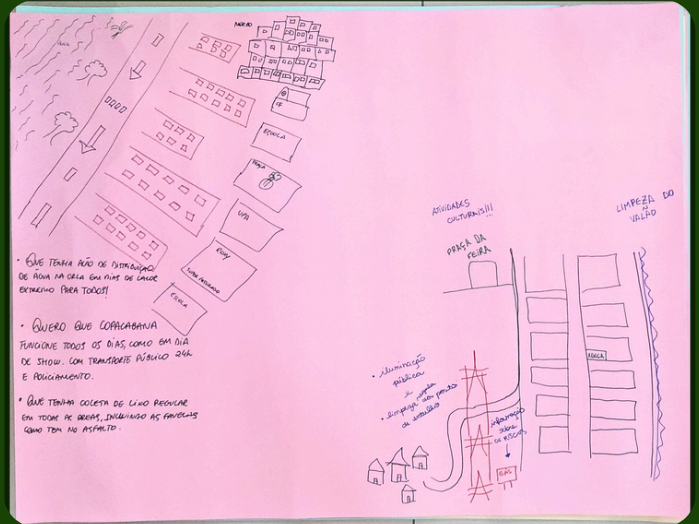 MORRO
CF
ESCOLA
PRAÇA
UPA
SUPERMERCADO
ESCOLA
• QUE TENHA AÇÃO DE DISTRIBUIÇÃO
DE ÁGUA NA ORLA EM DIAS DE CALOR
EXTREMO PARA TODOS!
• QUERO QUE COPACABANA
FUNCIONE TODOS OS DIAS, COMO EM DIA
DE SHOW. COM TRANSPORTE PÚBLICO 24h
E POLICIAMENTO.
• QUE TENHA COLETA DE LIXO REGULAR
EM TODAS AS ÁREAS, INCLUINDO AS FAVELAS
COMO TEM NO ASFALTO.
ATIVIDADES
CULTURAIS!!!
PRAÇA DA
FEIRA
LIMPEZA DO
VALÃO
• iluminação
pública
e
• limpeza do ponto
de entulho
informação
sobre
os RISCOS
GÁS